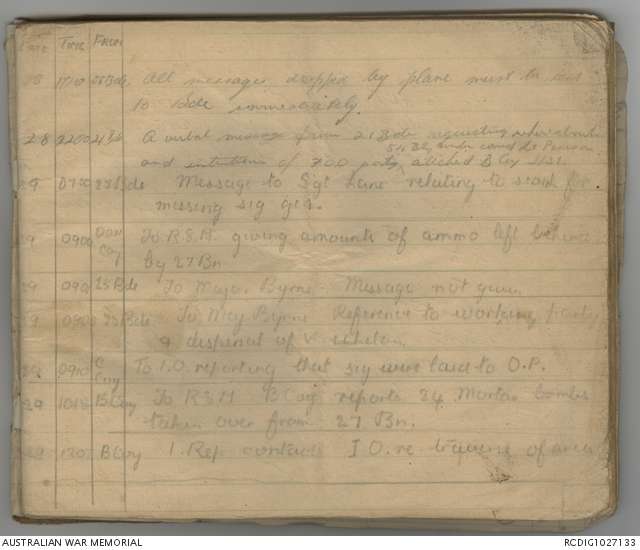 Date Time From
28 1710 23 Bde. All messages dropped by plane must be sent
to Bde immediately.
28 2200 A verbal message from 21 Bde requesting whereabouts
and intentions of 700 party, attached B Coy
29 0730 23 Bde Message to Sgt Lane relating to search for
missing sig gear.
29 0900 Don Coy To R.S.M. giving amounts of ammo left behind
by 27 Bn
29 23 Bde To Major Byrne - Message not given
29 0900 23 Bde. To Maj Byrne Reference to working party
& disposal of
29 0910 C Coy To I.O. reporting that sig wire laid to O.P.
29 1015 B Coy To R.S.M B Coy reports 24 Mortar bombs
taken over from 27 Bn.
29 B Coy I. Rep contacts I O. re traverse of area
AUSTRALIAN WAR MEMORIAL
RCDIG1027133